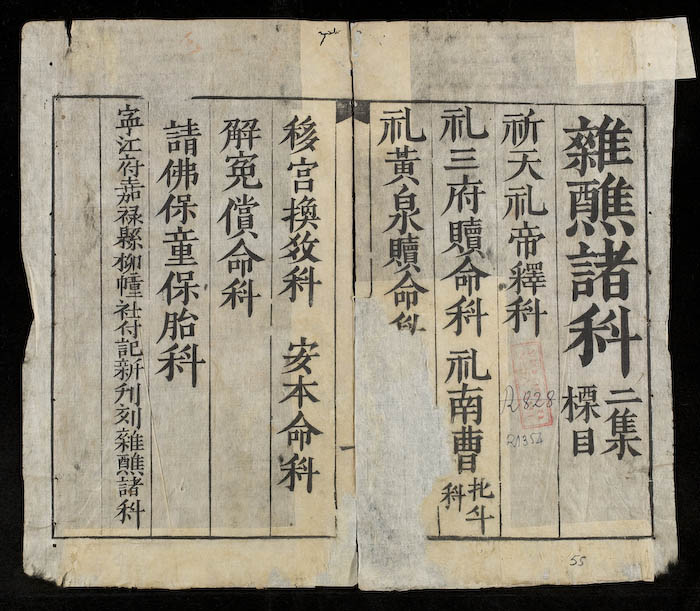 雜醮諸科 二集標目
祈天礼帝釋科
礼三府贖命科 礼南曹北斗科
礼黃泉贖命科
移宮換敎科 安本命科
解冤償命科
請佛保童保胎科
寜江府嘉禄縣柳幢社付記新刋刻雜醮諸科
A828
55